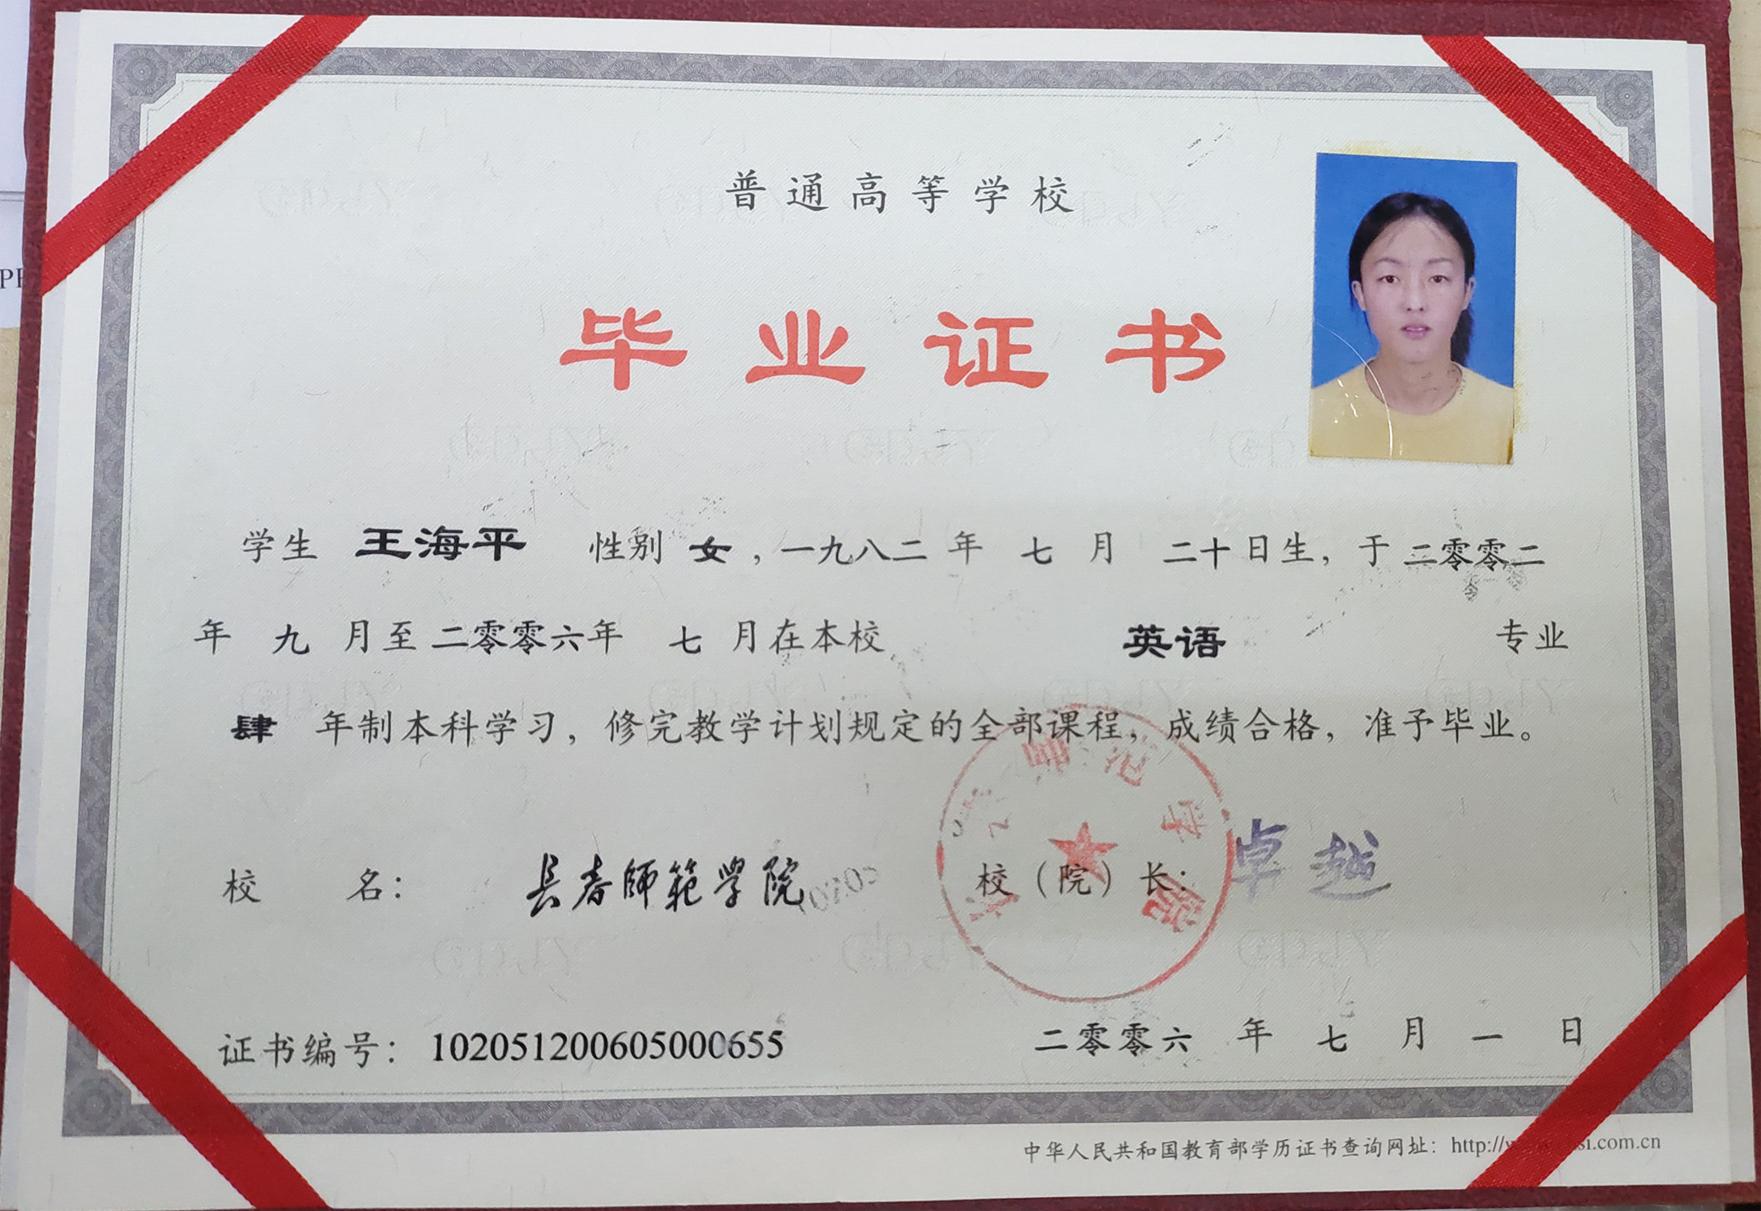 普通高等学校
毕业证书
学生 王海平 性别 女，一九八二 年 七 月 二十日生，于 二零零二
年 九 月至 二零零六年 七 月在本校 英语 专业
肆 年制本科学习，修完教学计划规定的全部课程，成绩合格，准予毕业。
校 名： 長春師範學院 校（院）长： 卓越
证书编号： 102051200605000655 二零零六 年 七 月 一 日
中华人民共和国教育部学历证书查询网址： http://
si.com.cn